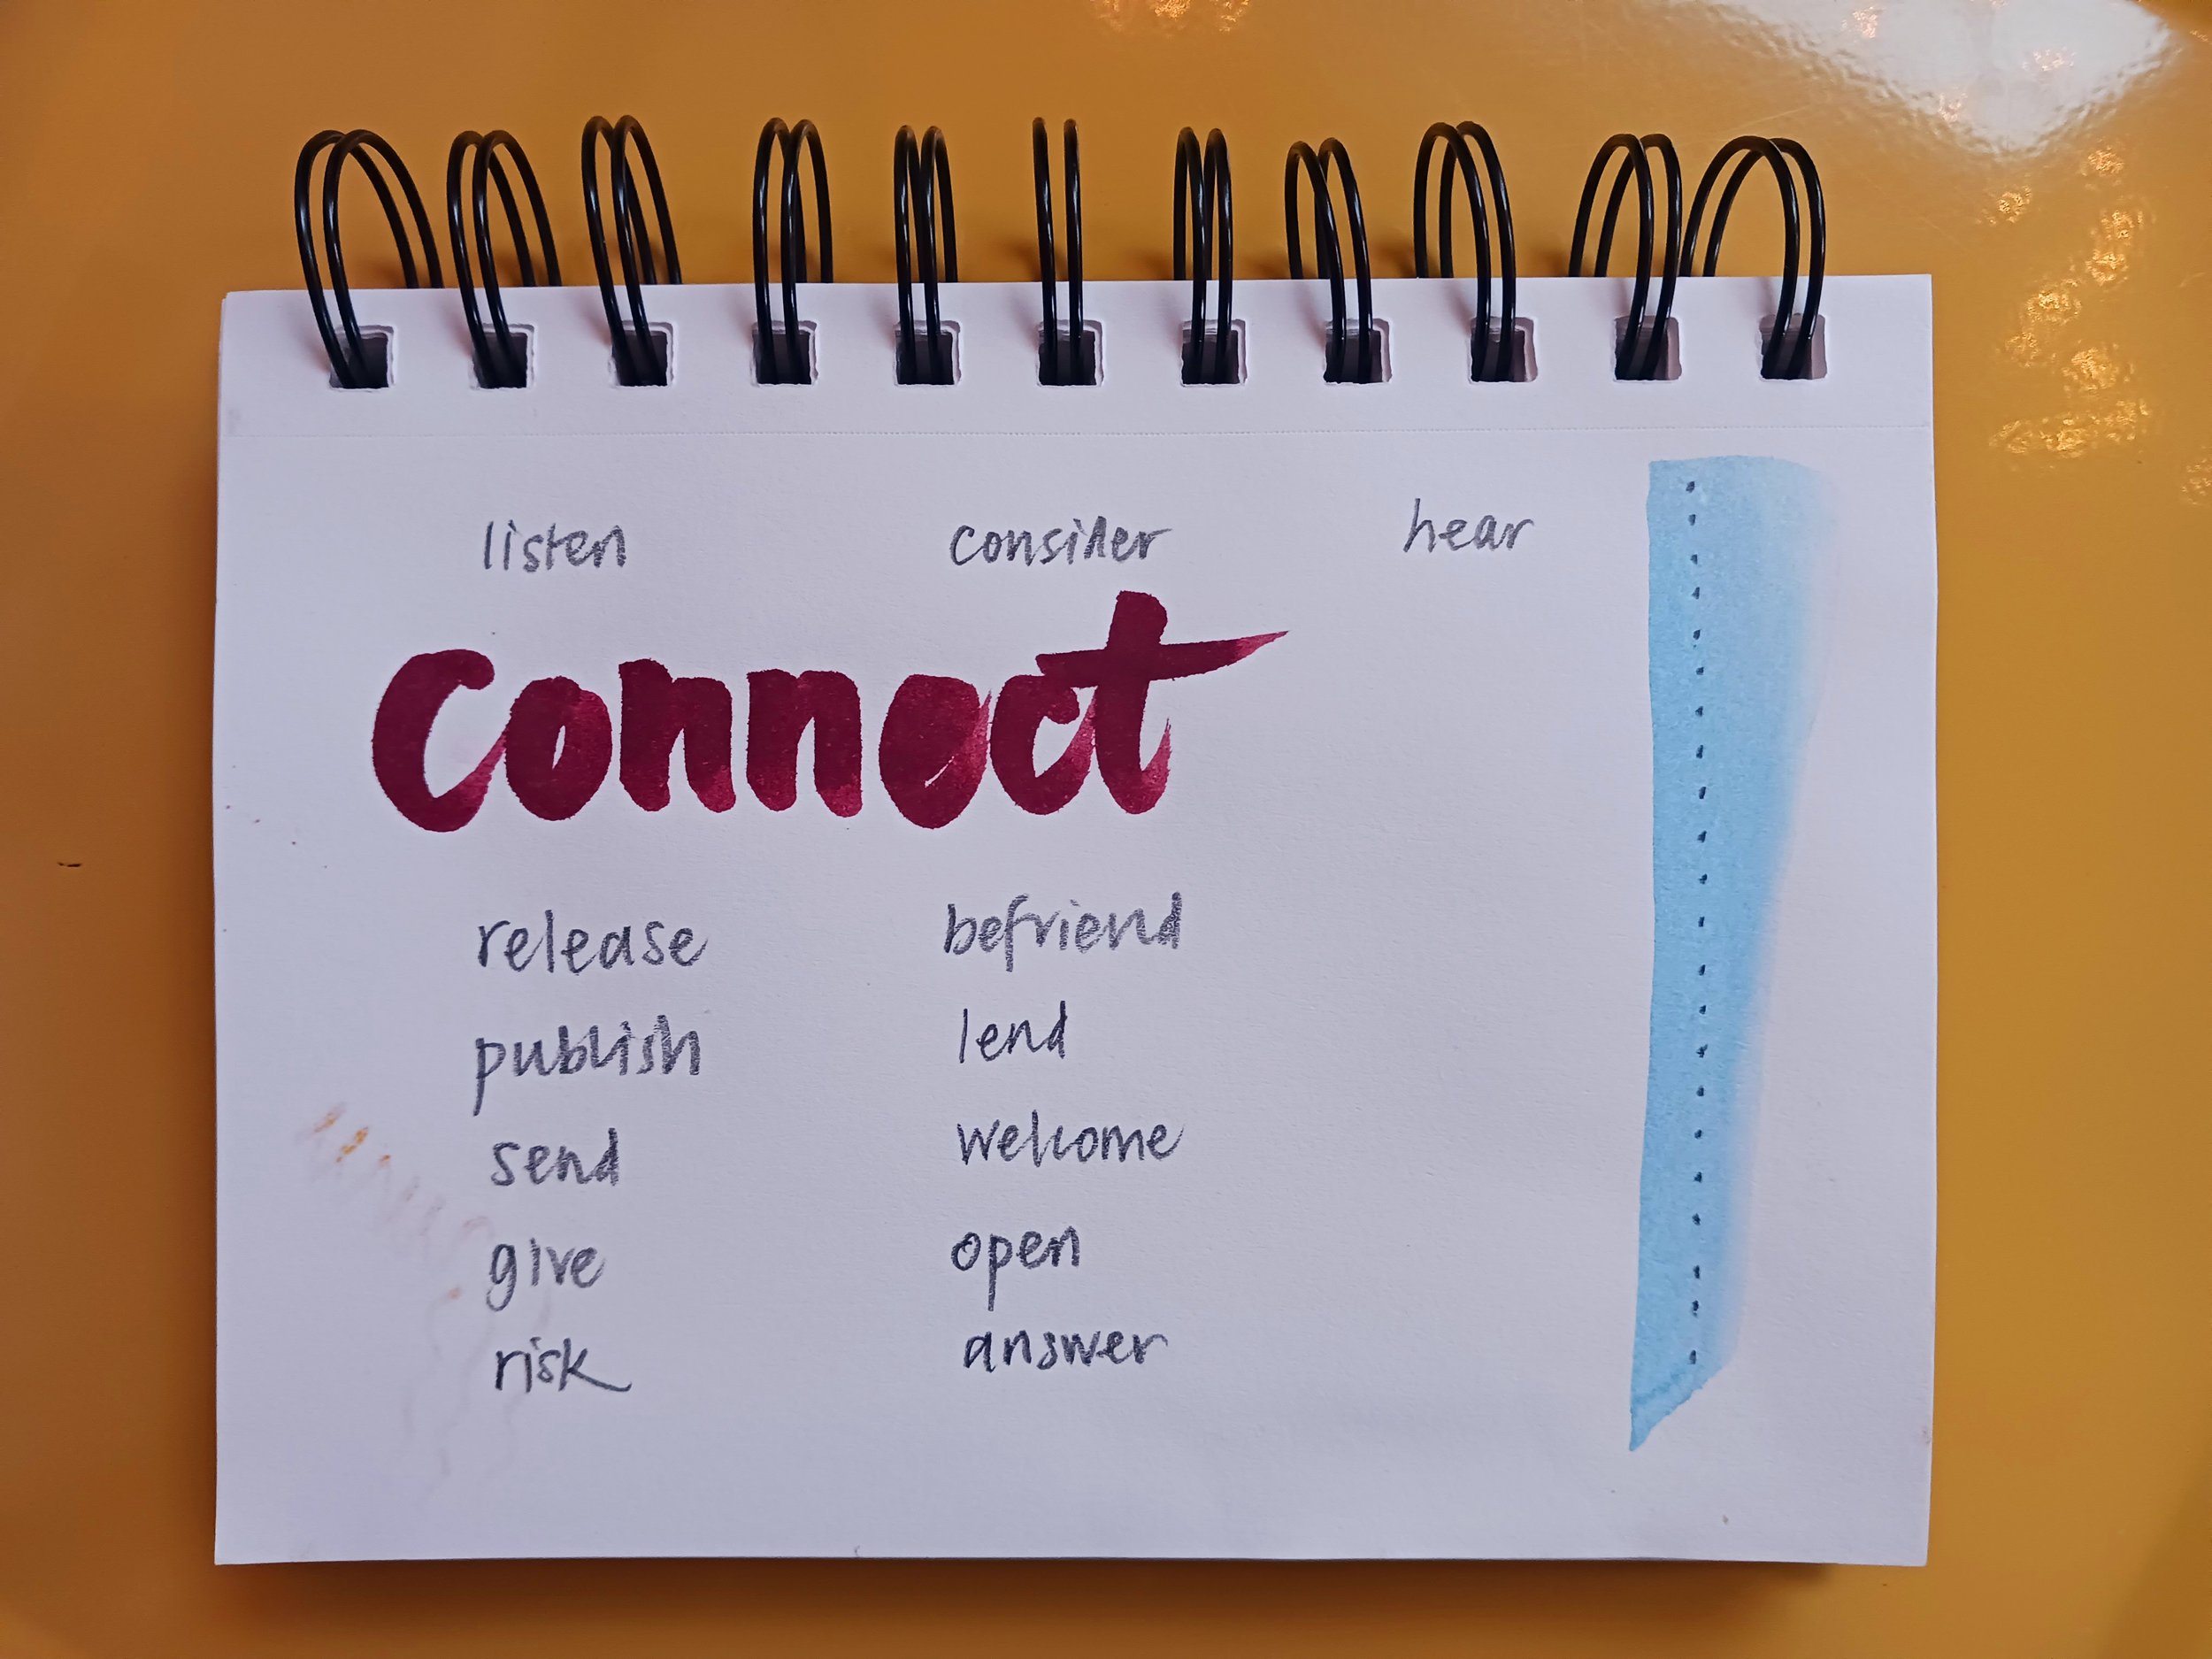 listen consider hear
Connect
release befriend
publish lend
send welcome
give open
risk answer